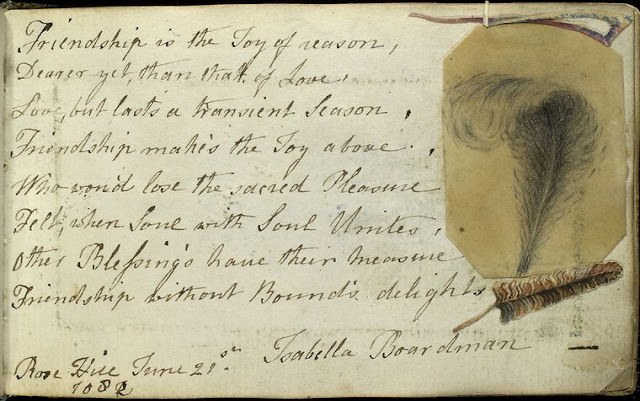 Friendship is the Joy of reason,
Dearer yet than that of Love,
Love, but lasts a transient Season,
Friendship makes the Joy above.
Who wou'd lose the sacred Pleasure
Felt, when Soul with Soul Unites,
Other Blessings have their measure
Friendship without Bounds delights
Isabella Boardman
Rose Hill June 21st